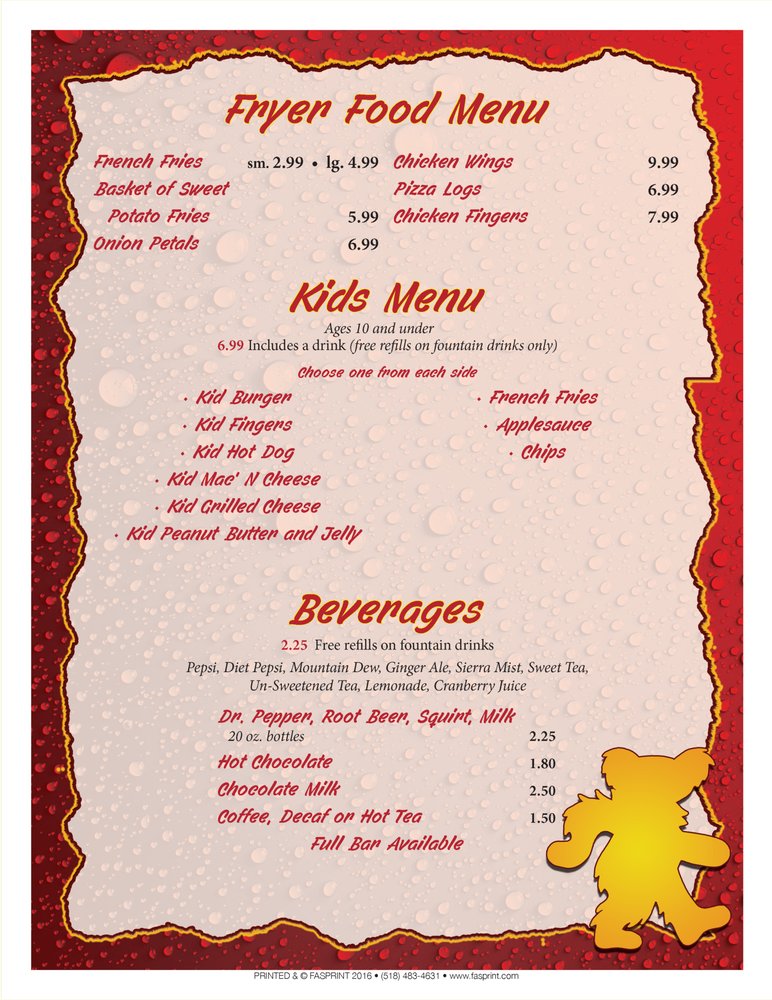 Fryer Food Menu
French Fries sm. 2.99 • lg. 4.99
Basket of Sweet
Potato Fries 5.99
Onion Petals 6.99
Chicken Wings 9.99
Pizza Logs 6.99
Chicken Fingers 7.99
Kids Menu
Ages 10 and under
6.99 Includes a drink (free refills on fountain drinks only)
Choose one from each side
· Kid Burger
· Kid Fingers
· Kid Hot Dog
· Kid Mac' N Cheese
· Kid Grilled Cheese
· Kid Peanut Butter and Jelly
· French Fries
· Applesauce
· Chips
Beverages
2.25 Free refills on fountain drinks
Pepsi, Diet Pepsi, Mountain Dew, Ginger Ale, Sierra Mist, Sweet Tea,
Un-Sweetened Tea, Lemonade, Cranberry Juice
Dr. Pepper, Root Beer, Squirt, Milk
20 oz. bottles 2.25
Hot Chocolate 1.80
Chocolate Milk 2.50
Coffee, Decaf or Hot Tea 1.50
Full Bar Available
PRINTED & © FASPRINT 2016 • (518) 483-4631 • www.fasprint.com